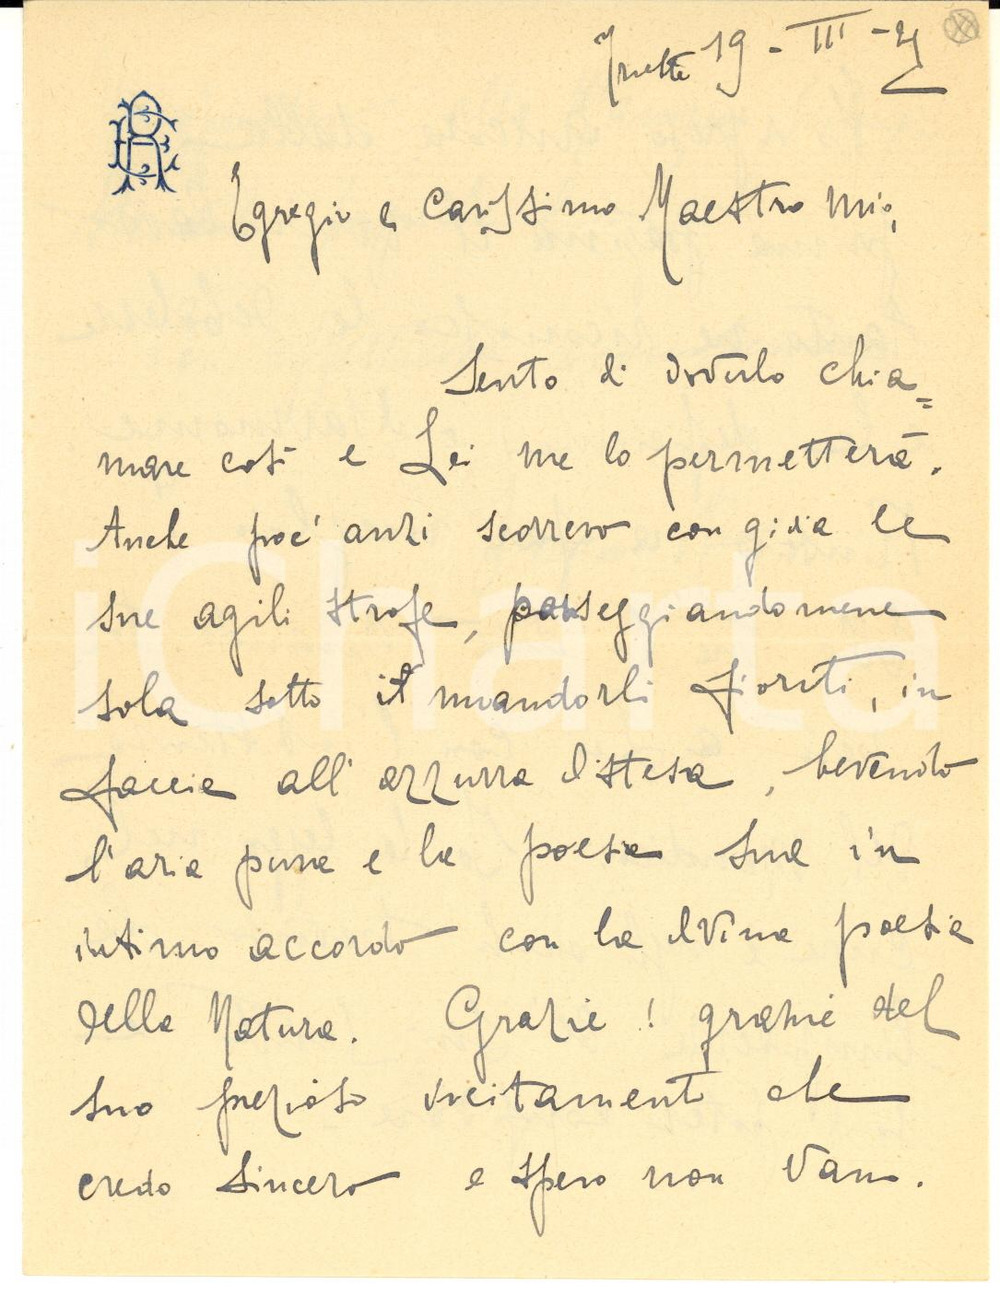 Trieste 19 - III - 21
Egregio e Carissimo Maestro mio,
Sento di doverlo chia=
mare così e Lei me lo permetterà.
Anche poc'anzi scorrevo con gioia le
sue agili strofe, passeggiandomene
sola sotto i mandorli fioriti, in
faccia all'azzurra distesa, bevendo
l'aria pura e la poesia Sua in
intimo accordo con la divina poesia
della Natura. Grazie! grazie del
suo prezioso incitamento che
credo sincero e spero non vano.
iCharta